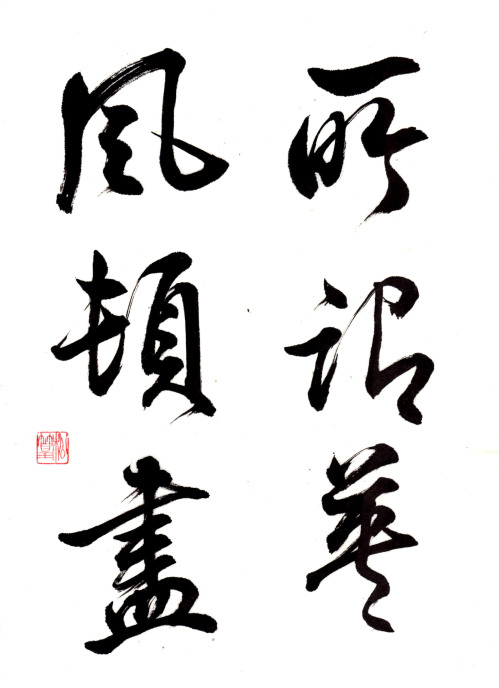 所謂英
風頓盡